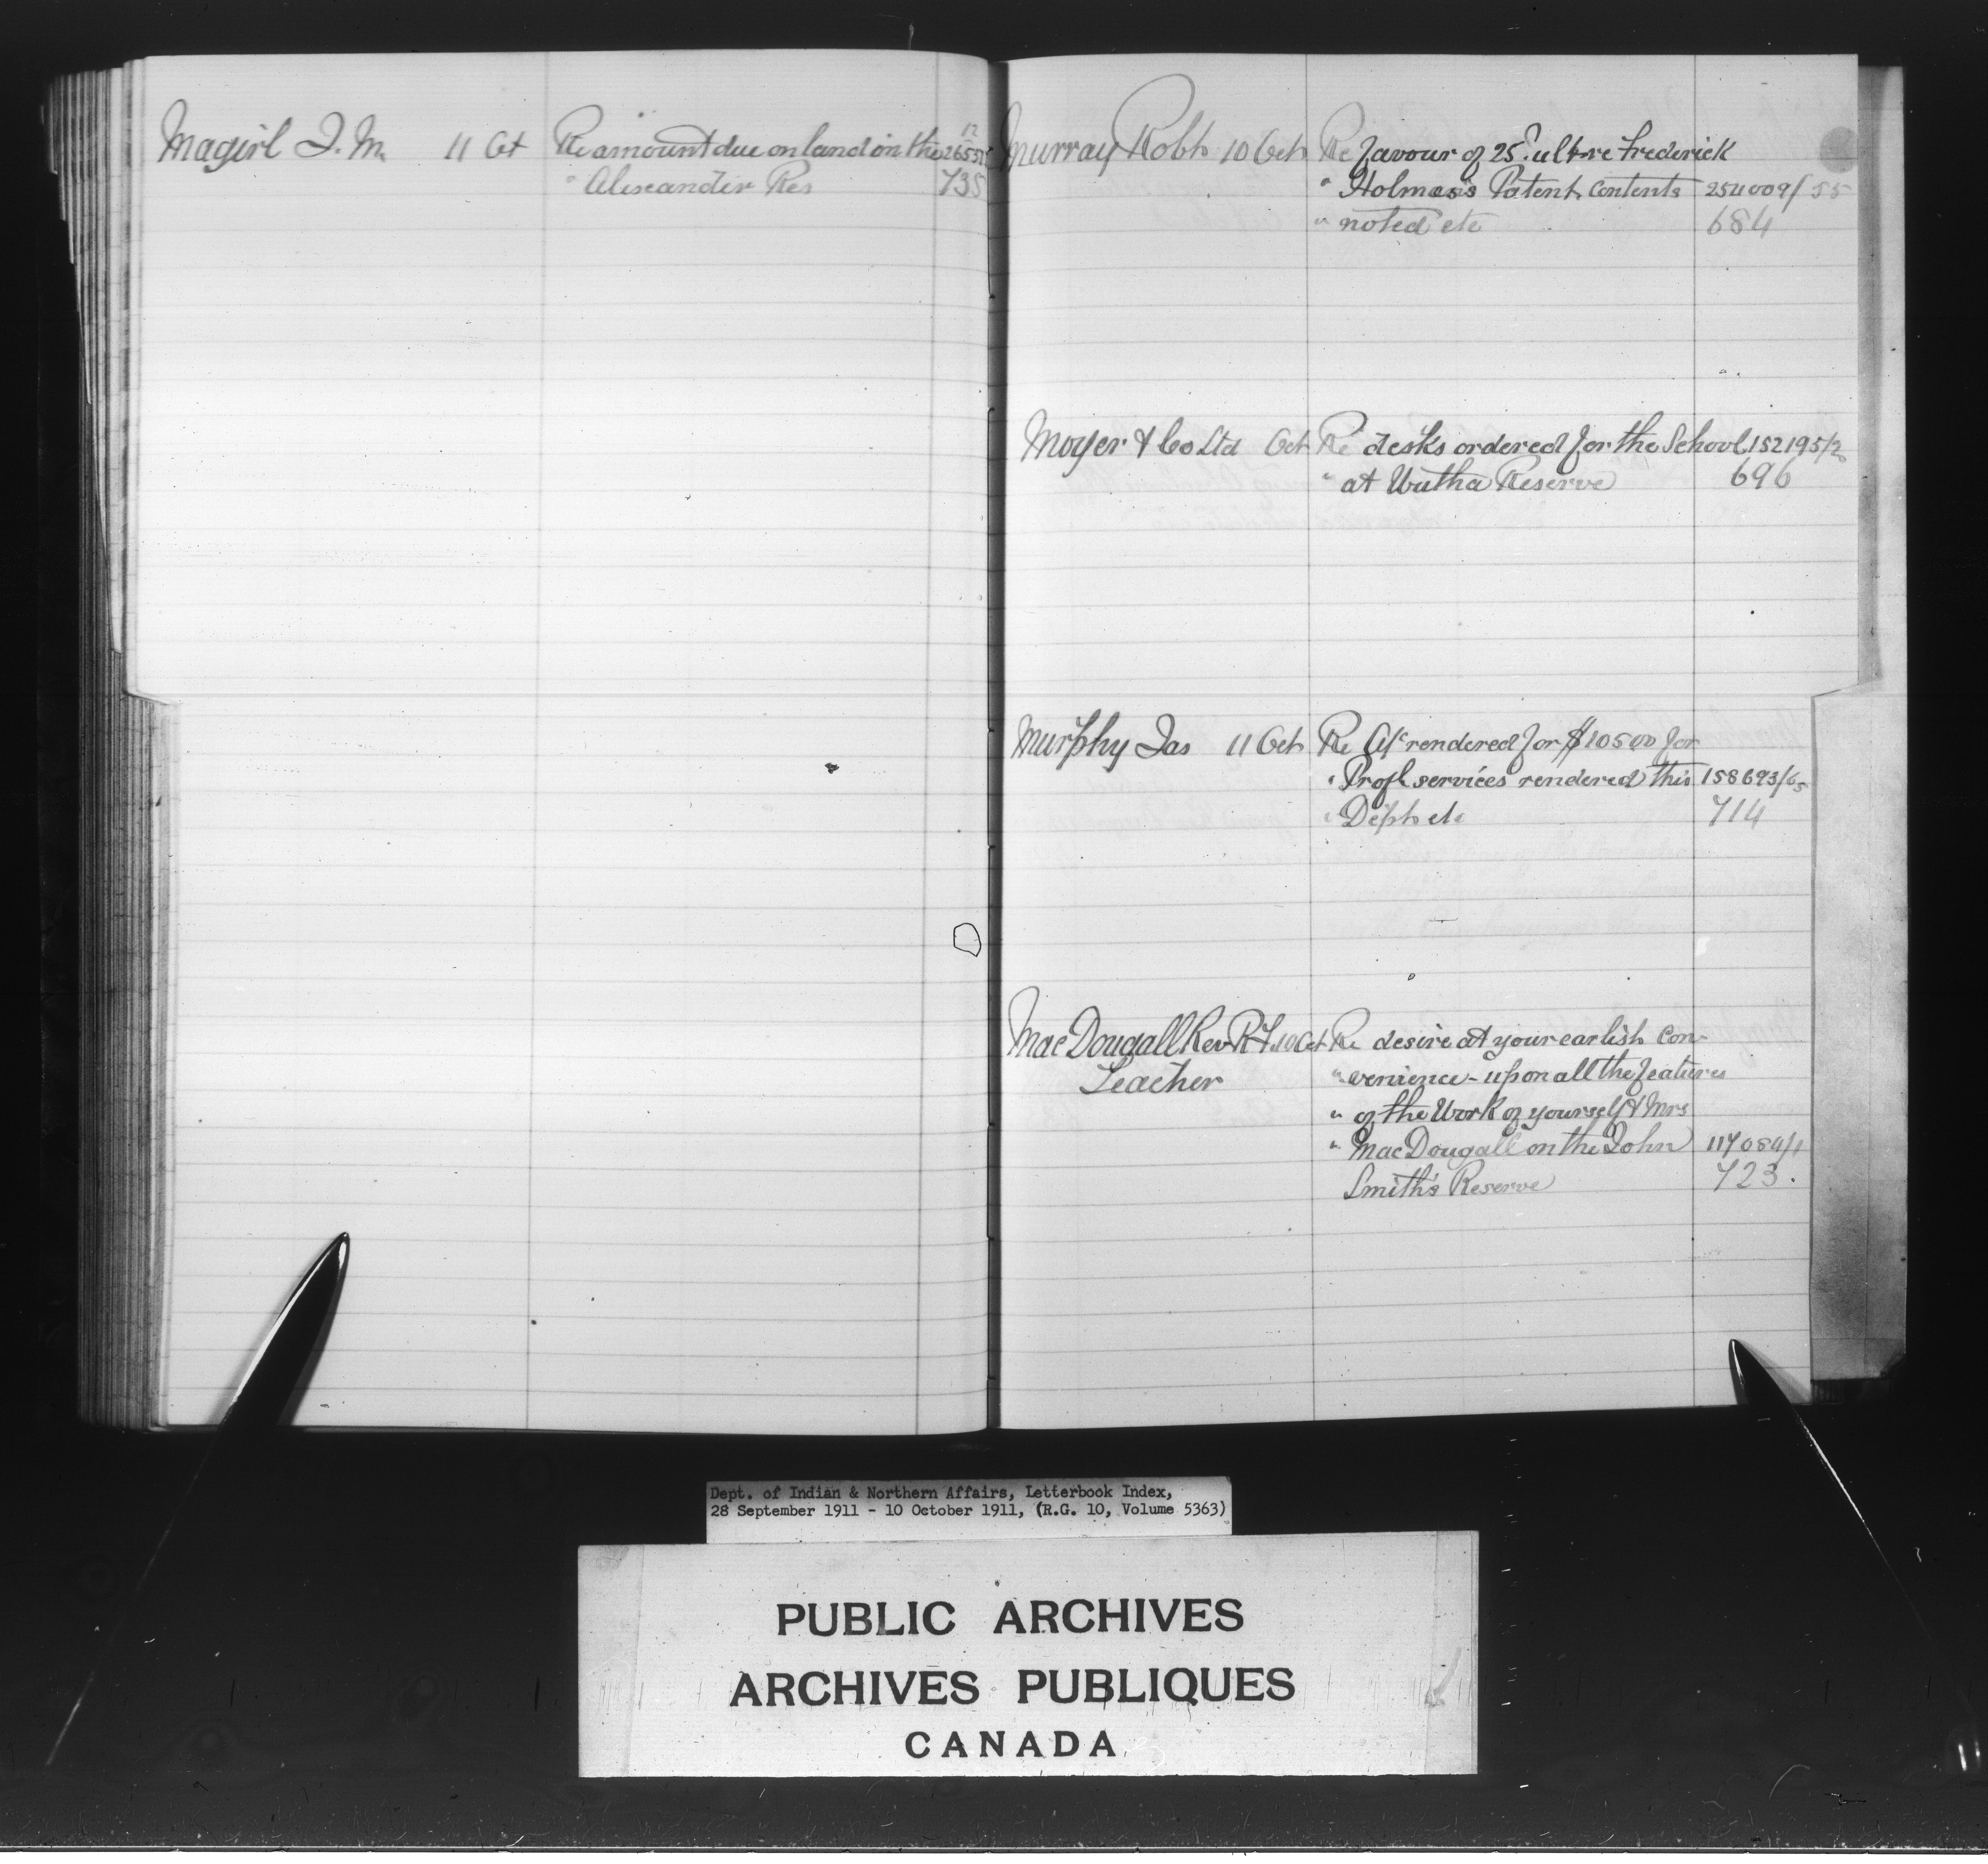 Magirl J. M. 11 Oct Re amount due on land on the 12 26555
" Alexander Res 735
Murray Robt 10 Oct Re favour of 25" ult re Frederick
" Holmes's Patent. Contents 254009/55
" noted etc 684
Moyer & Co Ltd Oct Re desks ordered for the School 152195/2
" at Wutha Reserve 696
Murphy Jas 11 Oct Re A/c rendered for $10500 for
" Profl services rendered this 158693/65
" Dept etc 714
MacDougall Rev R J 10 Oct Re desire at your earlist con-
Teacher " venience - upon all the features
" of the Work of yourself & Mrs
" MacDougall on the John 117084/1
Smith's Reserve 723.
Dept. of Indian & Northern Affairs, Letterbook Index,
28 September 1911 - 10 October 1911, (R.G. 10, Volume 5363)
PUBLIC ARCHIVES
ARCHIVES PUBLIQUES
CANADA